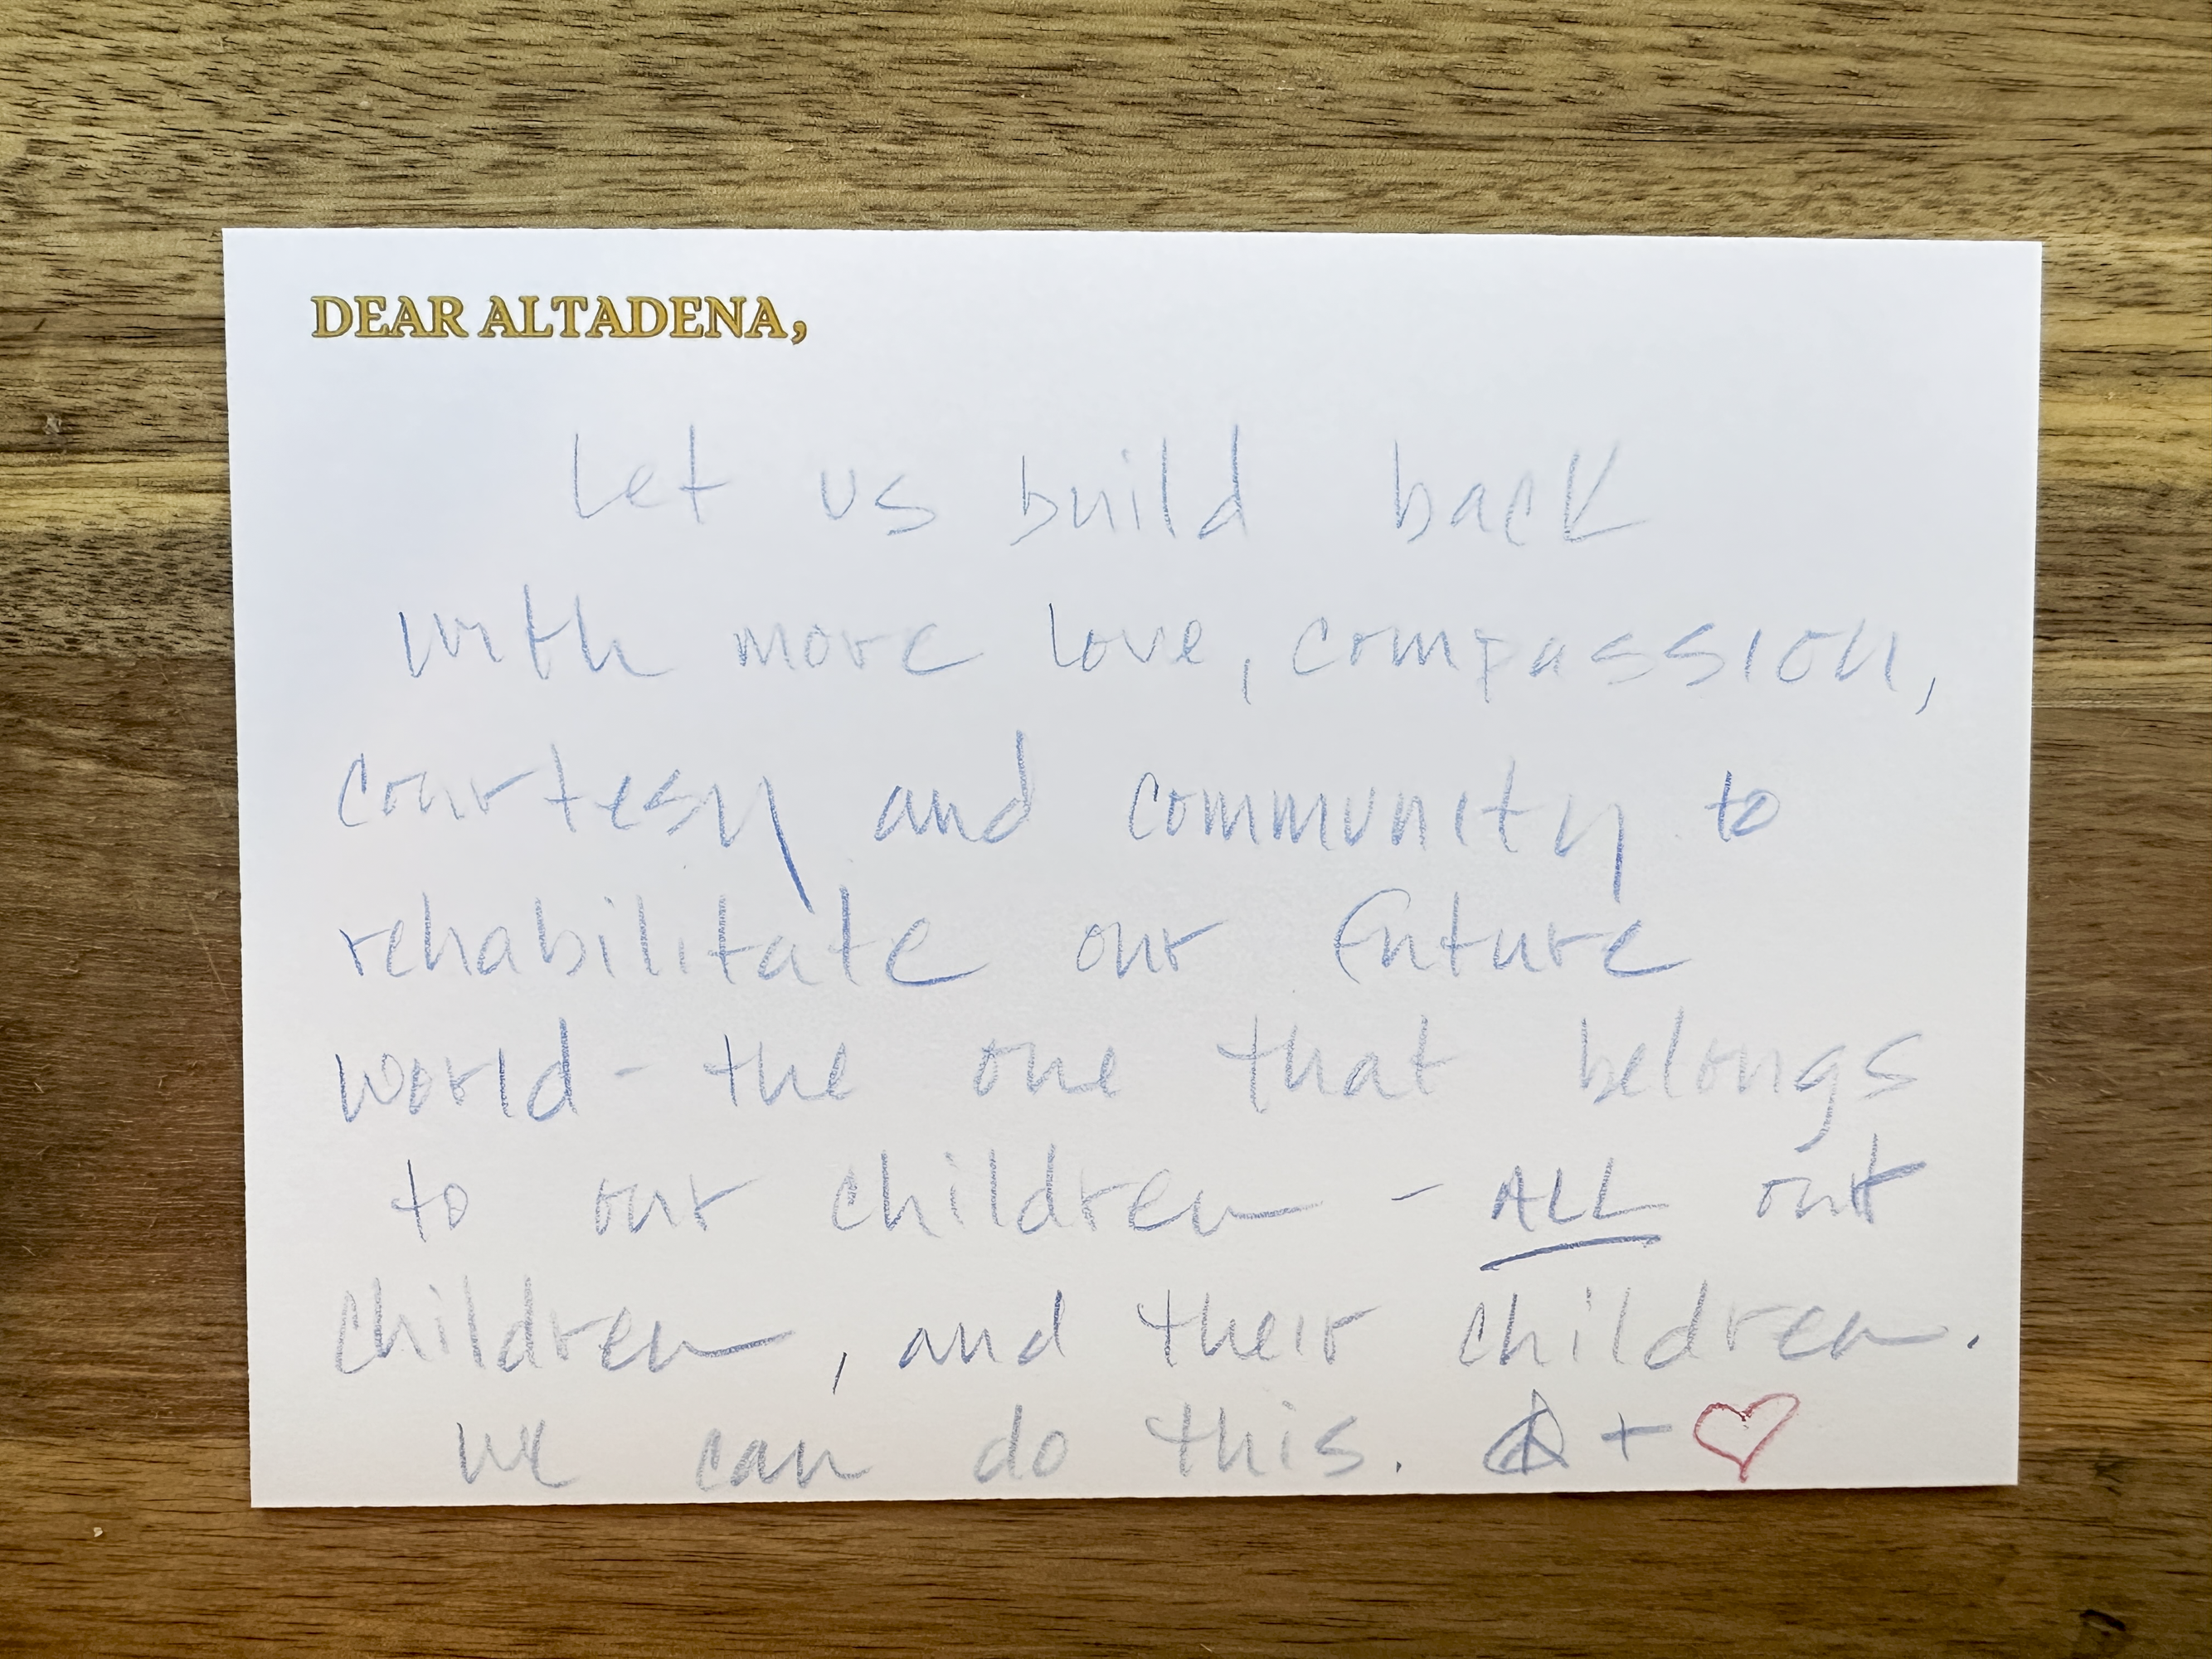 DEAR ALTADENA,
Let us build back
with more love, compassion,
courtesy and community to
rehabilitate our future
world - the one that belongs
to our children - ALL our
children, and their children.
We can do this. +